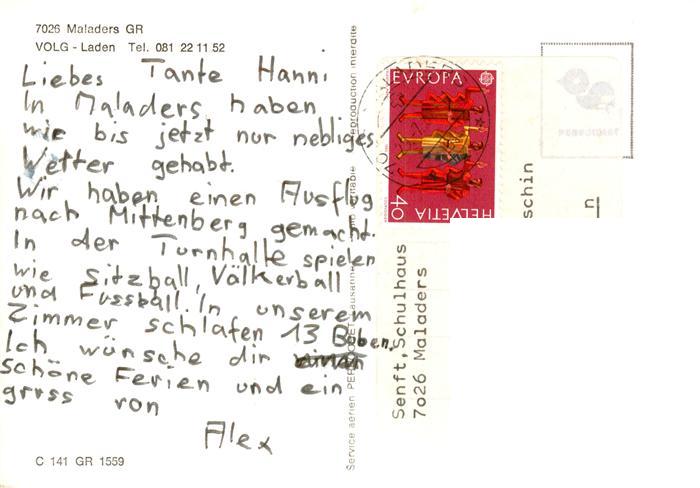 7026 Maladers GR
VOLG - Laden Tel. 081 22 11 52
Liebes Tante Hanni
In Maladers haben
wir bis jetzt nur nebliges
Wetter gehabt.
Wir haben einen Ausflug
nach Mittenberg gemacht.
In der Turnhalle spielen
wie Sitzball, Völkerball
und Fussball. In unserem
Zimmer schlafen 13 Buben.
Ich wünsche dir
schöne Ferien und ein
gruss von
Alex
C 141 GR 1559
Service aérien reproduction interdite
EUROPA
HELVETIA 40
schin
n
Senft, Schulhaus
7026 Maladers